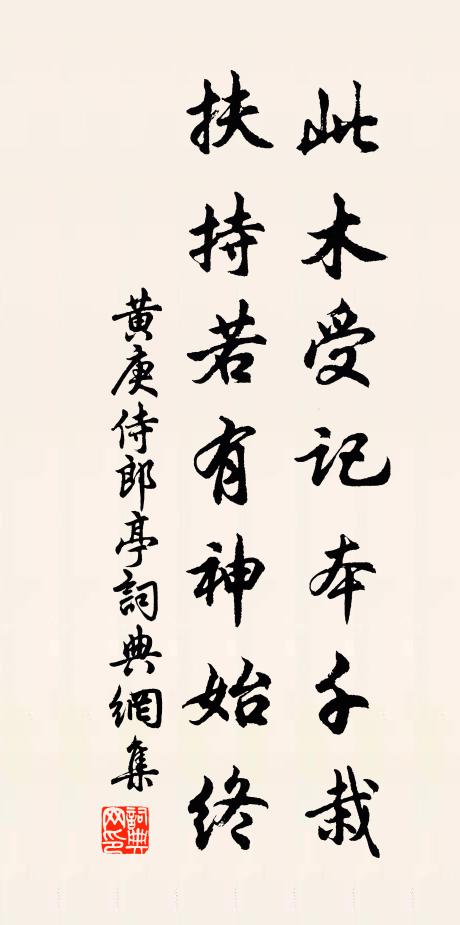 此木受记本千栽
扶持若有神始终
黄庚侍郎亭詞典網集
詞典網印